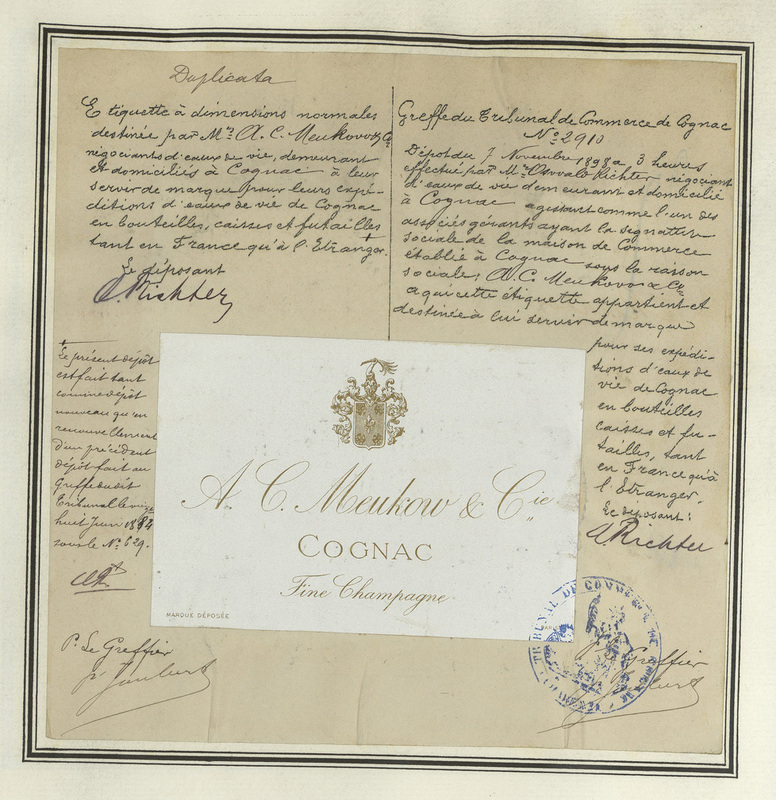 Duplicata
Etiquette à dimensions normales
destinée par Mrs A. C. Meukow & Cie
négociants d'eaux de vie, demeurant
et domiciliés à Cognac à leur
servir de marque pour leurs expé-
ditions d'eaux de vie de Cognac
en bouteilles, caisses et futailles
tant en France qu'à l'Etranger.
Le déposant
O. Richter
Greffe du Tribunal de Commerce de Cognac
No 2910
Dépôt du 7 Novembre 1898 à 3 heures
effectué par Mr Oswald Richter négociant
d'eaux de vie demeurant et domicilié
à Cognac agissant comme l'un des
associés gérants ayant la signature
sociale de la maison de Commerce
établie à Cognac sous la raison
sociale: A. C. Meukow & Cie
à qui cette étiquette appartient et
destinée à lui servir de marque
pour ses expédi-
tions d'eaux de
vie de Cognac
en bouteilles
caisses et fu-
tailles, tant
en France qu'à
l'Etranger.
Le déposant:
O. Richter
Le présent dépôt
est fait tant
comme dépôt
nouveau qu'en
renouvellement
d'un précédent
dépôt fait au
Greffe dudit
Tribunal le vingt
huit Juin 1884
sous le No 629.
A. C. Meukow & Cie
COGNAC
Fine Champagne
MARQUE DÉPOSÉE
P. Le Greffier
Joubert
TRIBUNAL DE COMMERCE DE
Greffier
Joubert